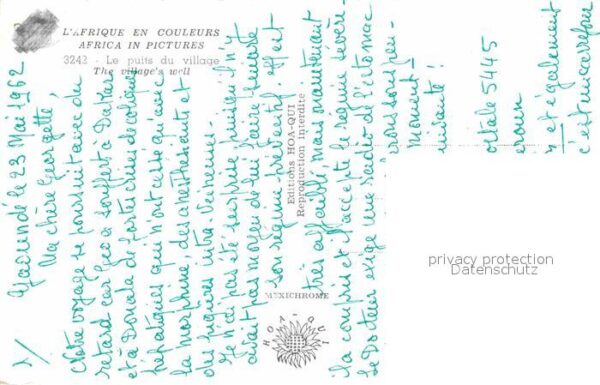 L'AFRIQUE EN COULEURS
AFRICA IN PICTURES
3242 - Le puits du village
The village's well
1/
Yaoundé le 23 Mai 1962
Ma chère Georgette,
Notre voyage se poursuit avec du
retard car Geo a souffert à Dakar
et à Douala de fortes crises de coliques
hépatiques qui n'ont cessé qu'avec
la morphine, des anesthésiants et
des piqures intra veineuses.
Je n'ai pas été surprise puisqu'il n'y
avait pas moyen de lui faire suivre
son régime préventif. Il est
très affaibli, mais maintenant
il a compris et accepte le régime sévère.
Le Docteur exige une radio de l'estomac
Editions HOA-QUI
Reproduction interdite
MEXICHROME
HOA-QUI
ostale 5445
eroun
n et également
c'est un carrefour
privacy protection
Datenschutz